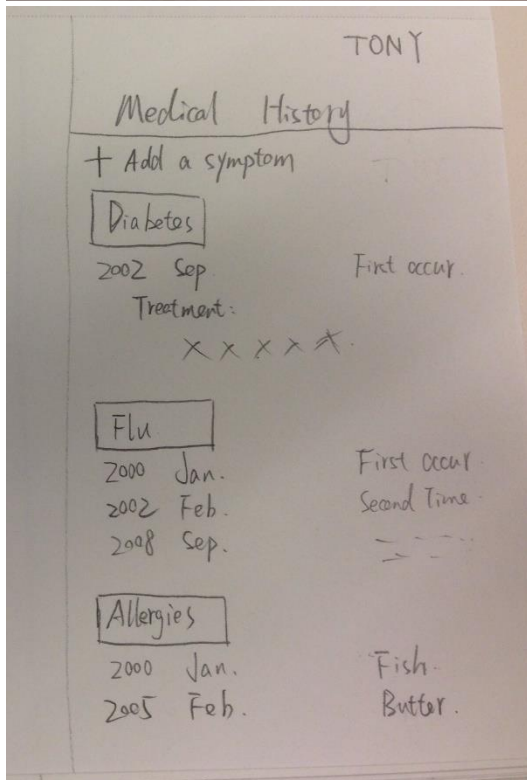 TONY
Medical History
+ Add a symptom
Diabetes
2002 Sep. First occur.
Treatment:
X X X X X.
Flu
2000 Jan. First occur.
2002 Feb. Second Time.
2008 Sep.
Allergies
2000 Jan. Fish.
2005 Feb. Butter.